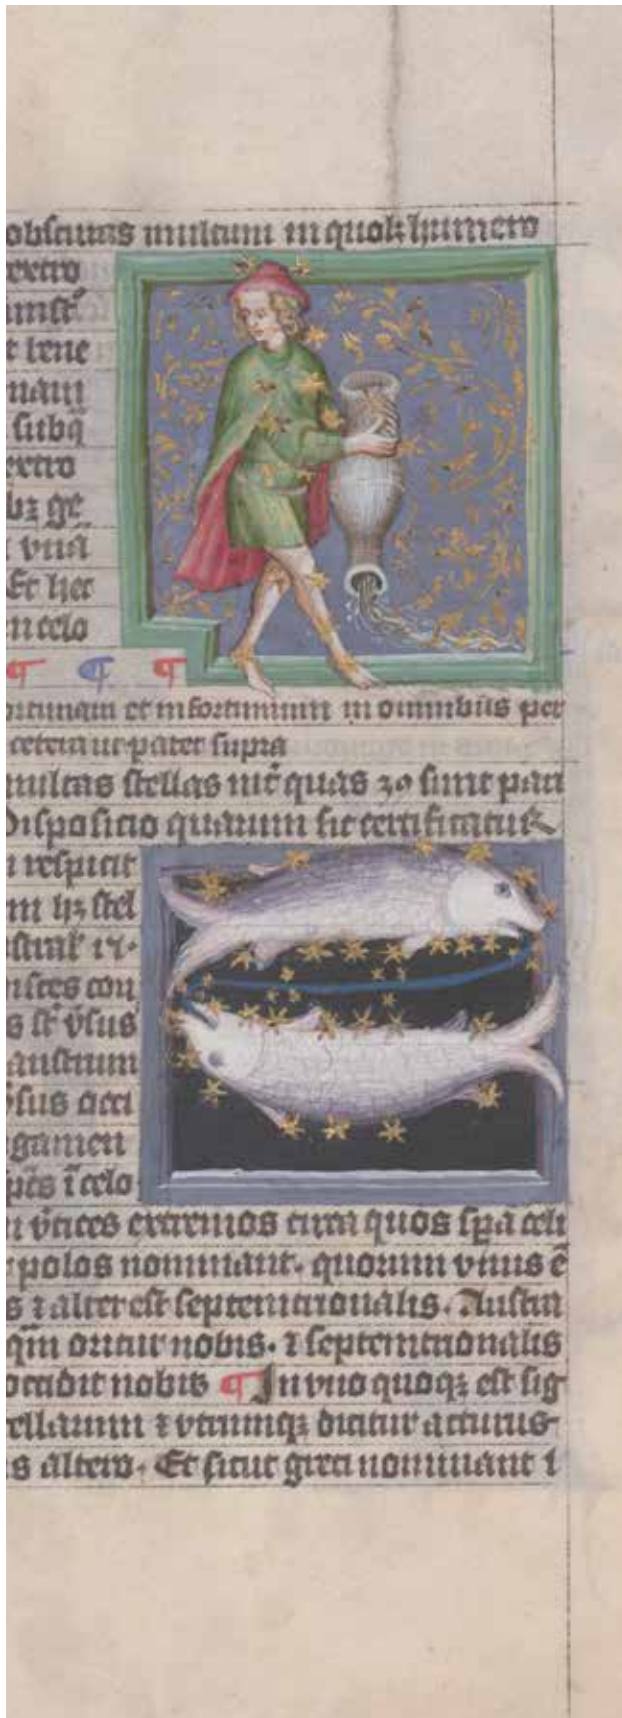 obscuras multum in quolz humero
extro
t lene
subq̃
extro
bz ge
unã
Et hec
n celo
¶ ¶ ¶
ortunam et infortunium in omnibus per
cetera ut patet supra
multas stellas nūc quas 30 sunt pari
Disposicio quarum sic certificatur
respicit
m hz stel
con
vsus
austrum
vsus occi
gamen
ī celo
vtices extremos circa quos spa celi
polos nominant. quorum vnus ē
s ⁊ alter est septemtrionalis. Austra
qm̄ oritur nobis. ⁊ septemtrionalis
occidit nobis ¶ In vno quoqz est sig
ellarum ⁊ vtrumqz dicitur arturus
s altero. Et sicut greci nominant i